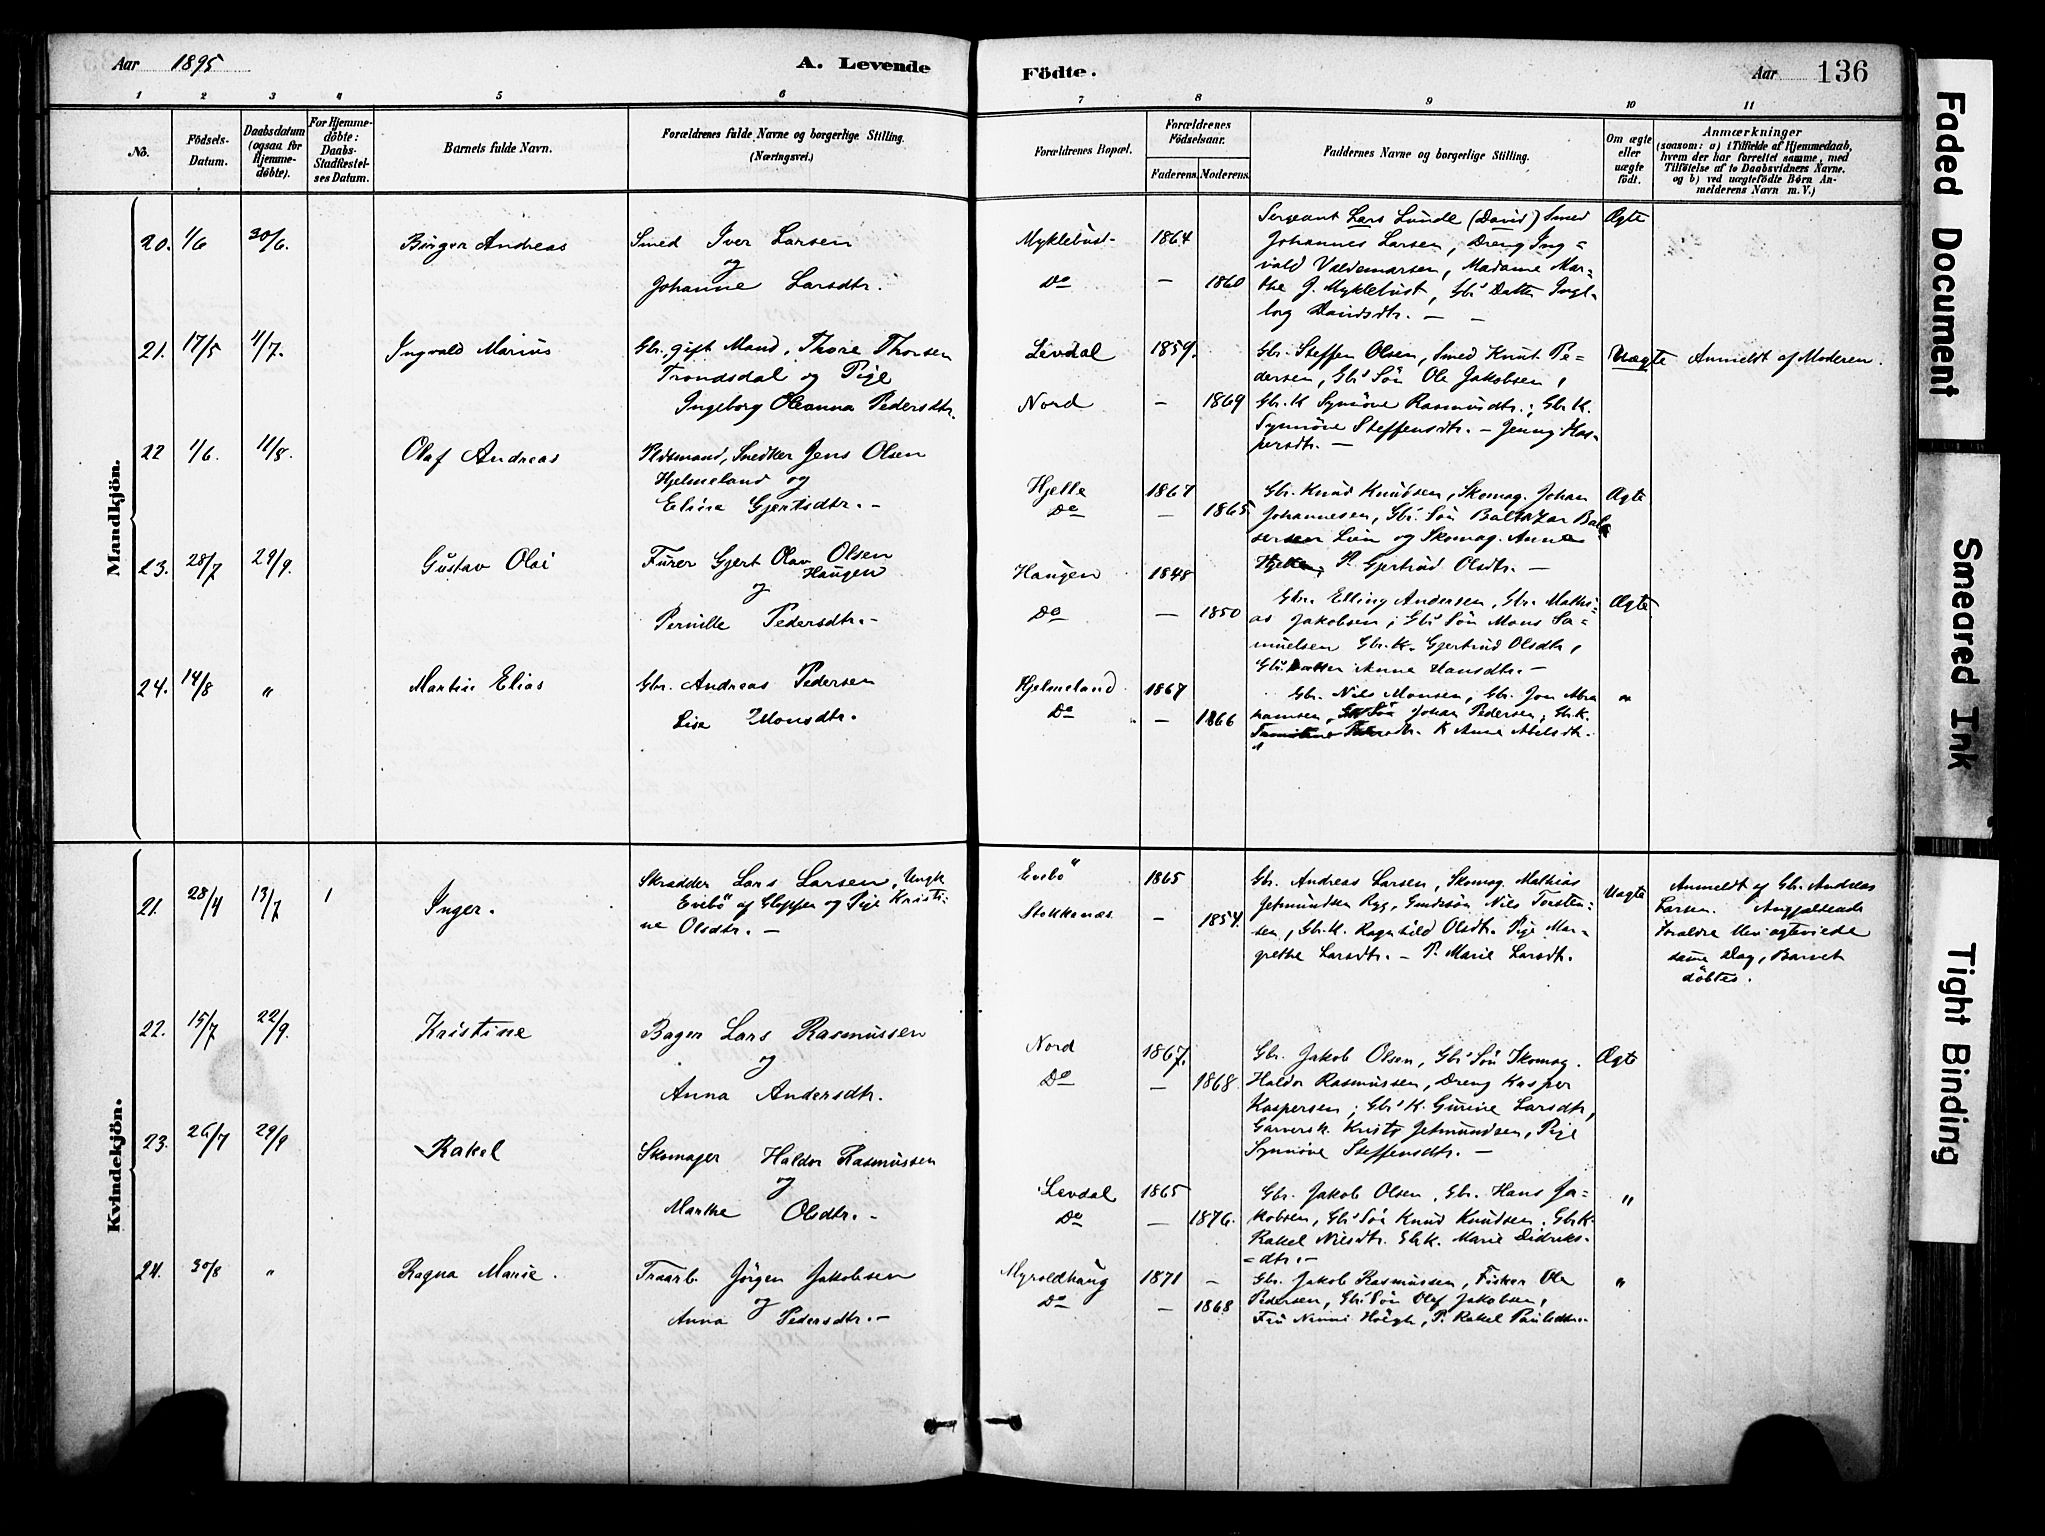 Aar 1895
A. Levende
Födte.
Aar 136
1 2 3 4 5 6 7 8 9 10 11
No.
Födsels-
Datum.
Daabsdatum
(ogsaa for
Hjemme-
döbte).
For Hjemme-
döbte:
Daabs-
Stadfæstel-
ses Datum.
Barnets fulde Navn.
Forældrenes fulde Navne og borgerlige Stilling.
(Næringsvei.)
Forældrenes Bopæl.
Forældrenes
Födselsaar.
Faderens. Moderens.
Faddernes Navne og borgerlige Stilling.
Om ægte
eller
uægte
födt.
Anmærkninger
(saasom: a) i Tilfælde af Hjemmedaab,
hvem der har forrettet samme, med
Tilföielse af to Daabsvidners Navne.
og b) ved uægtefödte Börn An-
melderens Navn m. V.)
Mandkjön.
20. 1/6 30/6. Birger Andreas
Smed Iver Larsen
og
Johanne Larsdtr.
Myklebust 1864
Do — 1860
Sergeant Lars Lunde (David) Smed
Johannes Larsen, Dreng Ing=
vald Valdemarsen, Madame Mar=
the J. Myklebust, Gbr's Datter Inge-
borg Davidsdtr. — —
Ægte
21. 17/5 11/7. Ingvald Marius
Gbr., gift Mand, Thore Thorsen
Trondsdal og Pige
Ingeborg Oleanna Pedersdtr.
Levdal 1859.
Nord — 1869
Gbr. Steffen Olsen, Smed Knut Pe-
dersen, Gbr's Sön Ole Jakobsen,
Gbr.K Synnöve Rasmusdtr., Gbr.K.
Synnöve Steffensdtr. — Jenny Kas-
persdtr. —
Uægte
Anmeldt af Moderen.
22 1/6. 11/8. Olaf Andreas
Pldsmand, Snedker Jens Olsen
Hjelmeland og
Elina Gjertsdtr. -
Hjelle 1867
Do — 1865
Gbr. Knud Knudsen, Skomag. Johan
Johannesen, Gbr's Sön Baltazar Bal
sersen Lien og Skomag. Anna
Hjelle, P. Gjertrud Olsdtr. —
Ægte
23. 28/7 29/9. Gustav Olai
Furer Gjert Olav Olsen
Haugen
og
Pernille Pedersdtr. -
Haugen 1848
Do — 1850
Gbr. Elling Andersen, Gbr. Mathi=
as Jakobsen, Gbr's Sön Mons Sa-
muelsen Gbr.K. Gjertrud Olsdtr,
Gbr's Datter Anne Hansdtr. —
Ægte
24. 14/8 " Martin Elias
Gbr. Andreas Pedersen
Lisa Monsdtr.
Hjelmeland 1867
Do — 1866
Gbr. Nils Monsen, Gbr. Jon Abra
hamsen, Gbr's Sön Johan Pedersen, Gbr.K.
K Anne Abelsdtr.
"
Kvindekjön.
21. 28/4 13/7 1 Inger.
Skrædder Lars Larsen, Ungk
Evebö af Gloppen og Pige Kristi=
ne Olsdtr. —
Evebö 1865
Stokkenæs — 1854.
Gbr. Andreas Larsen, Skomag. Mathias
Jetmundsen Ryg, Gaardsön Nils Torsten=
sen, Gbr.K. Ragnhild Olsdtr. Pige Mar-
grethe Larsdtr. — P. Marie Larsdtr.
Uægte
Anmeldt af Gbr. Andreas
Larsen. Angjældende
Forældre blev ægteviede
samme Dag, Barnet
döbtes.
22. 15/7 22/9. Kristine
Bager Lars Rasmussen
og
Anna Andersdtr.
Nord 1867.
Do — 1868
Gbr. Jakob Olsen, Gbr's Sön Skomag.
Haldor Rasmussen, Dreng Kasper
Kaspersen, Gbr's K. Gurine Larsdtr,
Garversk. Kristi Jetmundsen, Pige
Synnöve Steffensdtr. —
Ægte
23. 26/7 29/9 Rakel
Skomager Haldor Rasmussen
og
Marthe Olsdtr. -
Levdal 1865
Do — 1876.
Gbr. Jakob Olsen, Gbr. Hans Ja-
kobsen, Gbr's Sön Knud Knudsen, Gbr.K.
Rakel Nilsdtr. Gbr.K. Marie Didriks-
=dtr. —
"
24. 30/8 " Ragna Marie.
Traarb. Jörgen Jakobsen
og
Anna Pedersdtr. -
Myroldhaug 1871 -
Do — 1868
Gbr. Jakob Rasmussen, Fisker Ole
Pedersen, Gbr's Sön Olaf Jakobsen,
Fru Ninni Höegh, P. Rakel Paulsdtr.
"
Faded Document
Smeared Ink
Tight Binding